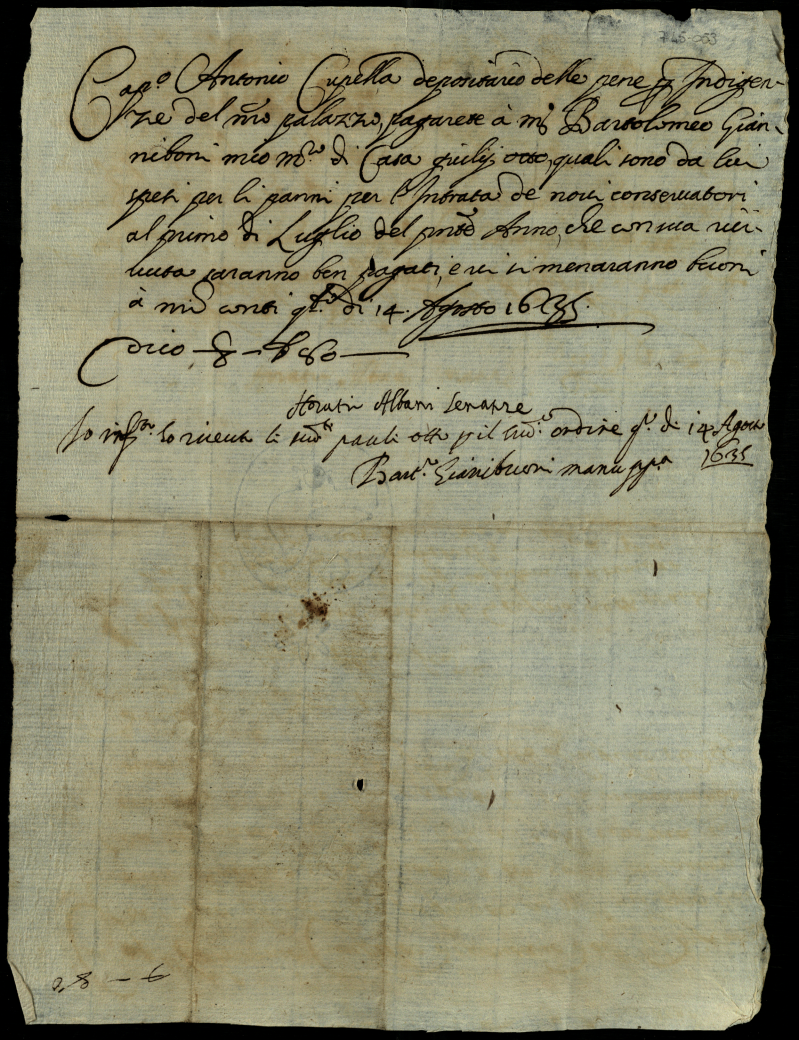 745-053
Cap.o Antonio Cupella depositario delle pene p Indigen-
ze del nro palazzo, pagarete à m. Bartolomeo Gian
niboni mio m.ro di Casa giulij otto, quali sono da lui
spesi per li panni per l'Intrata de novi conservatori
al primo di Luglio del pnte Anno, che con sua rice-
vuta saranno ben pagati, e vi si menaranno buoni
à nri conti q.to di 14. Agosto 1635.
Dico
Horatio Albani Senatre
Io infr.to ho riceuto li sud.ti pauli otto p il sud.o ordine q.to di 14 Agosto
1635
Bart.o Gianiboni manu pp.a